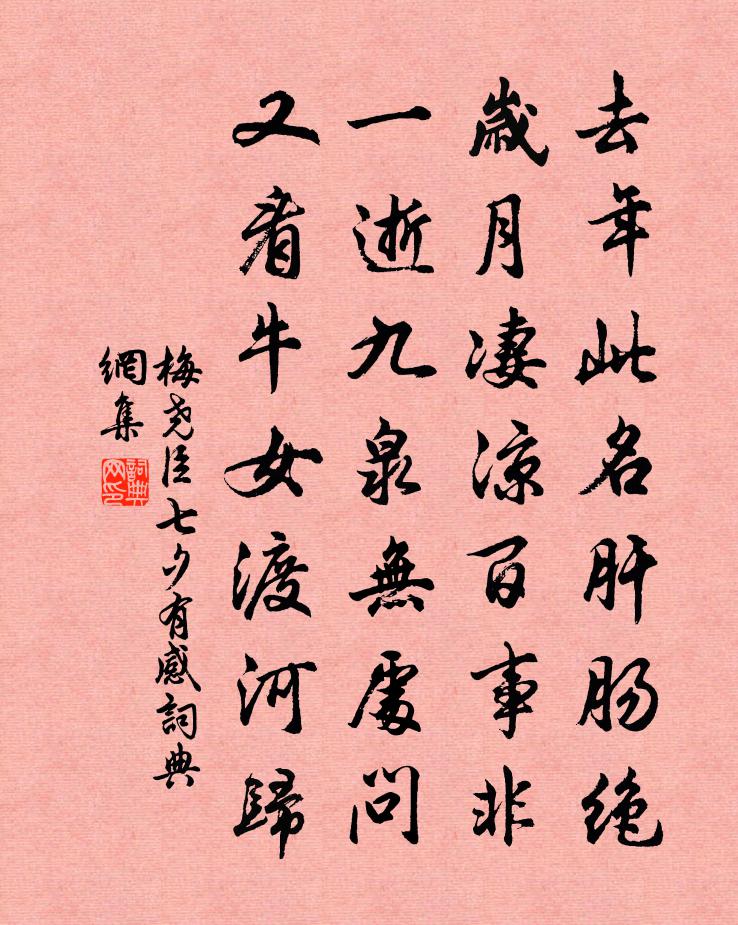 去年此名肝肠绝
歲月凄涼百事非
一逝九泉無處問
又看牛女渡河歸
梅尧臣七夕有感詞典
網集
詞典
网印